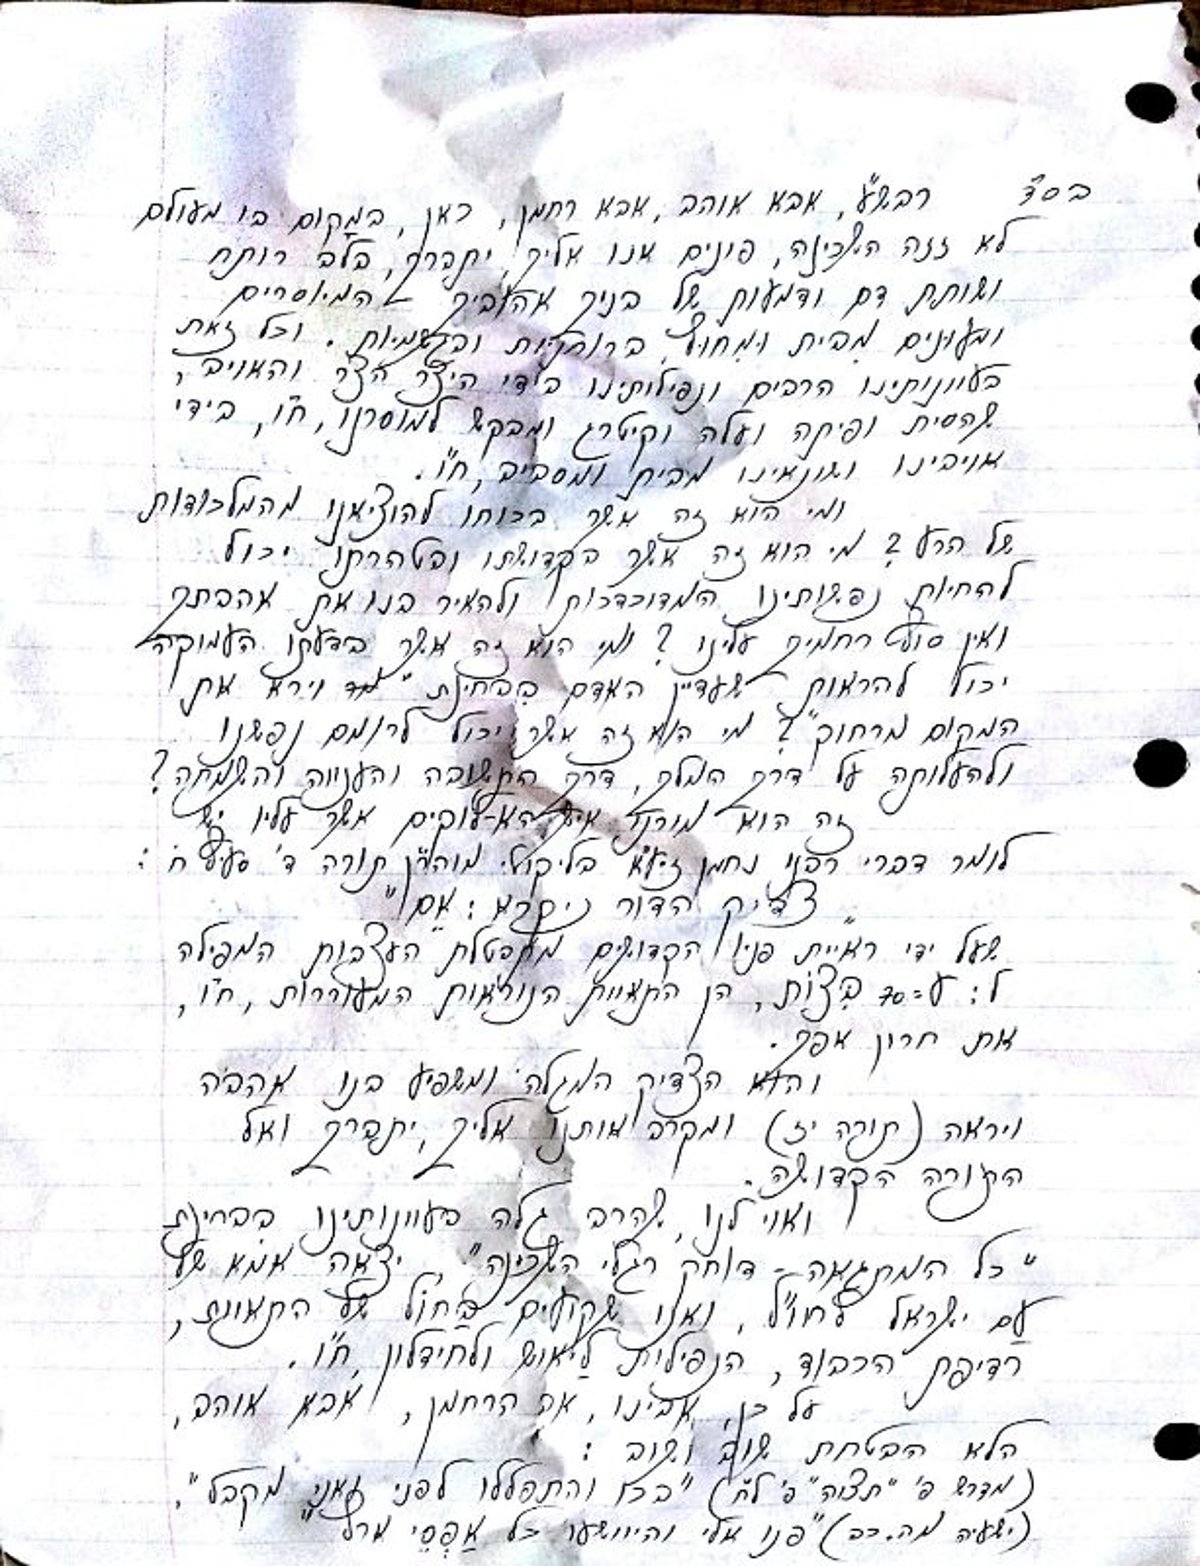 בס״ד רבש״ע, אבא אוהב, אבא רחמן, כאן, במקום בו מעולם
לא זזה השכינה, פונים אנו אליך, יתברך, בלב רותח
ושותת דם ודמעות של בניך אהוביך המיוסרים
ומעונים מבית ומחוץ, ברוחניות ובגשמיות. וכל זאת
בעוונותינו הרבים ונפילותינו בידי היצר הצר והאויב,
שהסית ופיתה ועלה וקיטרג ומבקש למוסרנו, ח״ו, בידי
אויבינו ושונאינו מבית ומסביב, ח״ו.
ומי הוא זה אשר בכוחו להוציאנו מהמלכודות
של הרע? מי הוא זה אשר בקדושתו ובטהרתו יכול
להחיות נפשותינו המדוכדכות ולהאיר בנו את אהבתך
ואין סוף רחמיך עלינו? ומי הוא זה אשר בדעתו העמוקה
יכול להראות שעדיין האדם בבחינת "וירא את
המקום מרחוק"? מי הוא זה אשר יכול לרומם נפשנו
ולהעלותה על דרך המלך, דרך התשובה והענווה והשמחה?
זה הוא מורנו איש הא-לוקים אשר עליו יש
לומר דברי רבנו נחמן זיע״א בליקוטי מוהר״ן תורה ד' סעיף ח':
"צדיק הדור ניקרא: אם"
שעל ידי ראיית פניו הקדושים מתבטלת העצבות המפילה
ל: ע=70 בצות, הן התאוות הנוראות המעוררות, ח״ו,
את חרון אפך.
והוא הצדיק המגלה ומשפיע בנו אהבה
ויראה (תורה יז) ומקרב אותנו אליך, יתברך ואל
התורה הקדושה.
ואוי לנו, שהרב גלה בעוונותינו בבחינת
"כל המתגאה - דוחק רגלי השכינה", יצאה אמא של
עם ישראל לחו״ל, ואנו שקועים בחול של התאוות,
רדיפת הכבוד, הנפילות ליאוש ולחידלון, ח״ו.
על כן, אבינו, אב הרחמן, אבא אוהב,
הלא הבטחת שוב ושוב:
(מדרש פ' "תצוה" פ' ל״ח) "בכו והתפללו לפני ואני מקבל".
(ישעיה מה.כב) "פנו אלי והיוושעו כל אפסי ארץ"